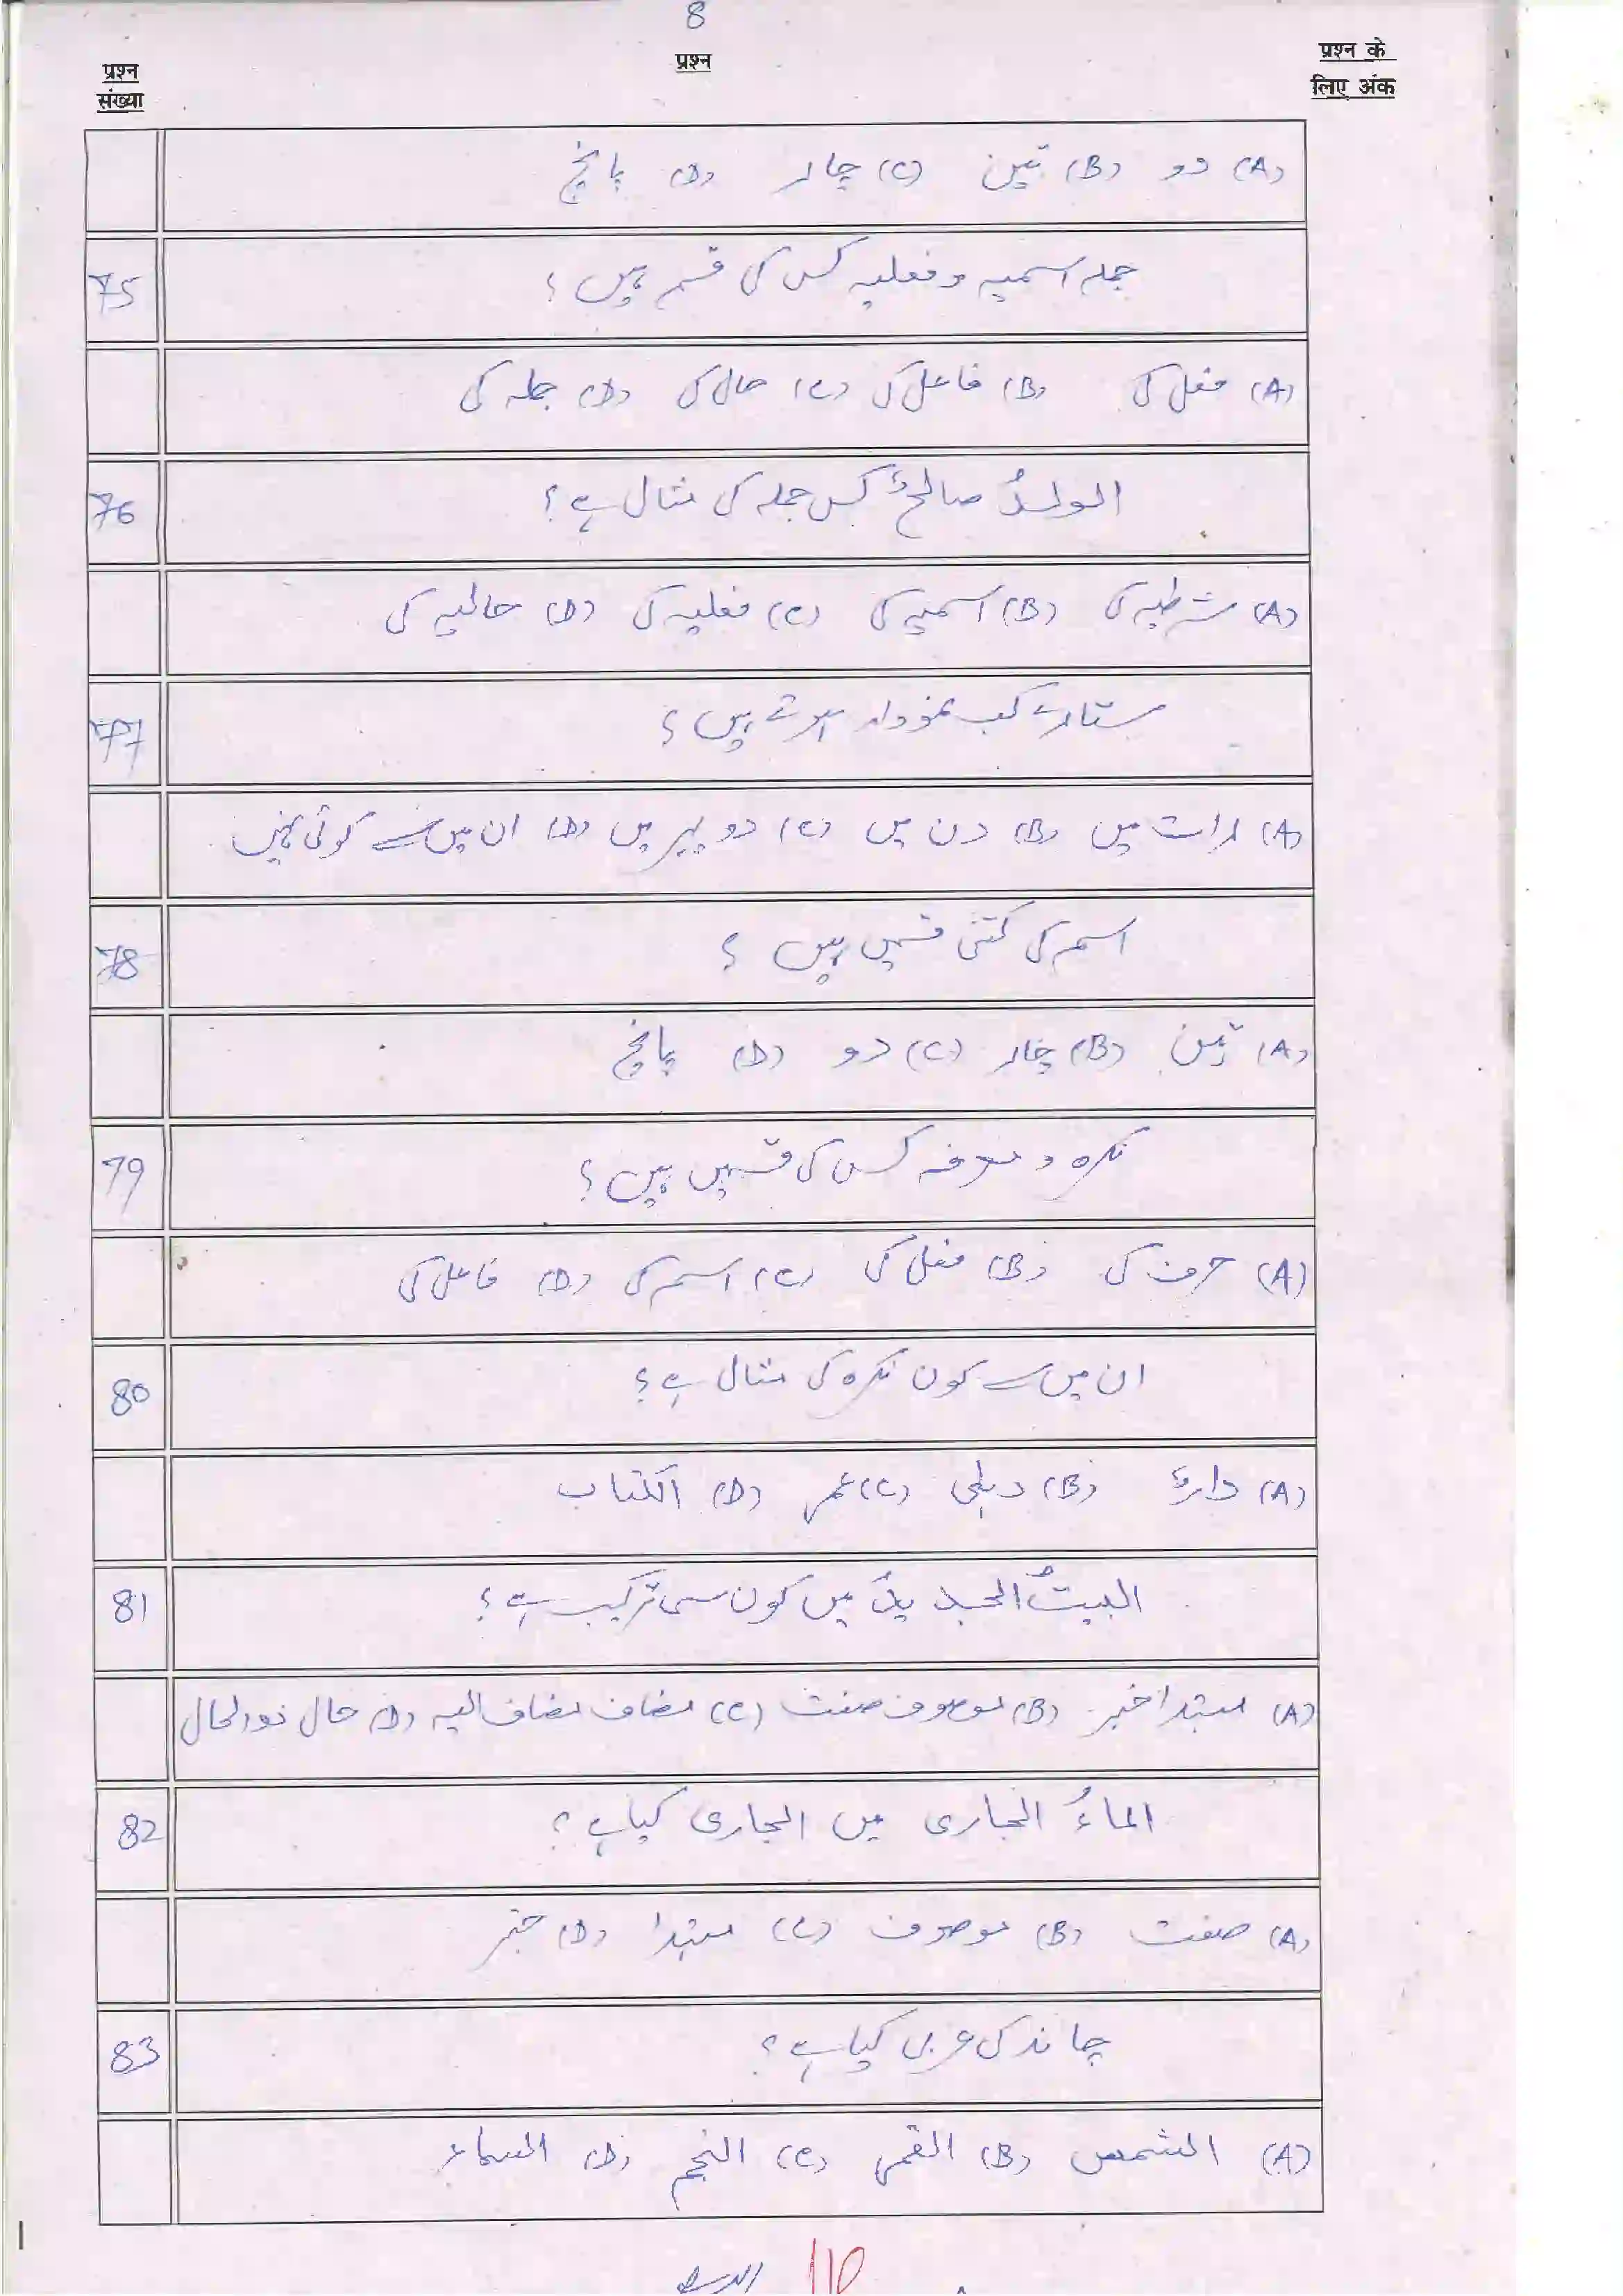 8
प्रश्न संख्या
प्रश्न
प्रश्न के लिए अंक
(A) دو (B) تین (C) چار (D) پانچ
75 جملہ اسمیہ و فعلیہ کس کی قسم ہیں؟
(A) فعل کی (B) فاعل کی (C) حال کی (D) جملہ کی
76 الولدُ صالحٌ کس جملہ کی مثال ہے؟
(A) شرطیہ کی (B) اسمیہ کی (C) فعلیہ کی (D) حالیہ کی
77 ستارے کب نمودار ہوتے ہیں؟
(A) رات میں (B) دن میں (C) دوپہر میں (D) ان میں سے کوئی نہیں
78 اسم کی کتنی قسمیں ہیں؟
(A) تین (B) چار (C) دو (D) پانچ
79 نکرہ و معرفہ کس کی قسمیں ہیں؟
(A) حرف کی (B) فعل کی (C) اسم کی (D) فاعل کی
80 ان میں سے کون نکرہ کی مثال ہے؟
(A) دارٌ (B) دہلی (C) عمر (D) الکتاب
81 البیتُ الجدیدُ میں کون سی ترکیب ہے؟
(A) مبتدا خبر (B) موصوف صفت (C) مضاف مضاف الیہ (D) حال ذوالحال
82 الماءُ الجاری میں الجاری کیا ہے؟
(A) صفت (B) موصوف (C) مبتدا (D) خبر
83 چاند کی عربی کیا ہے؟
(A) الشمس (B) القمر (C) النجم (D) السماء
110